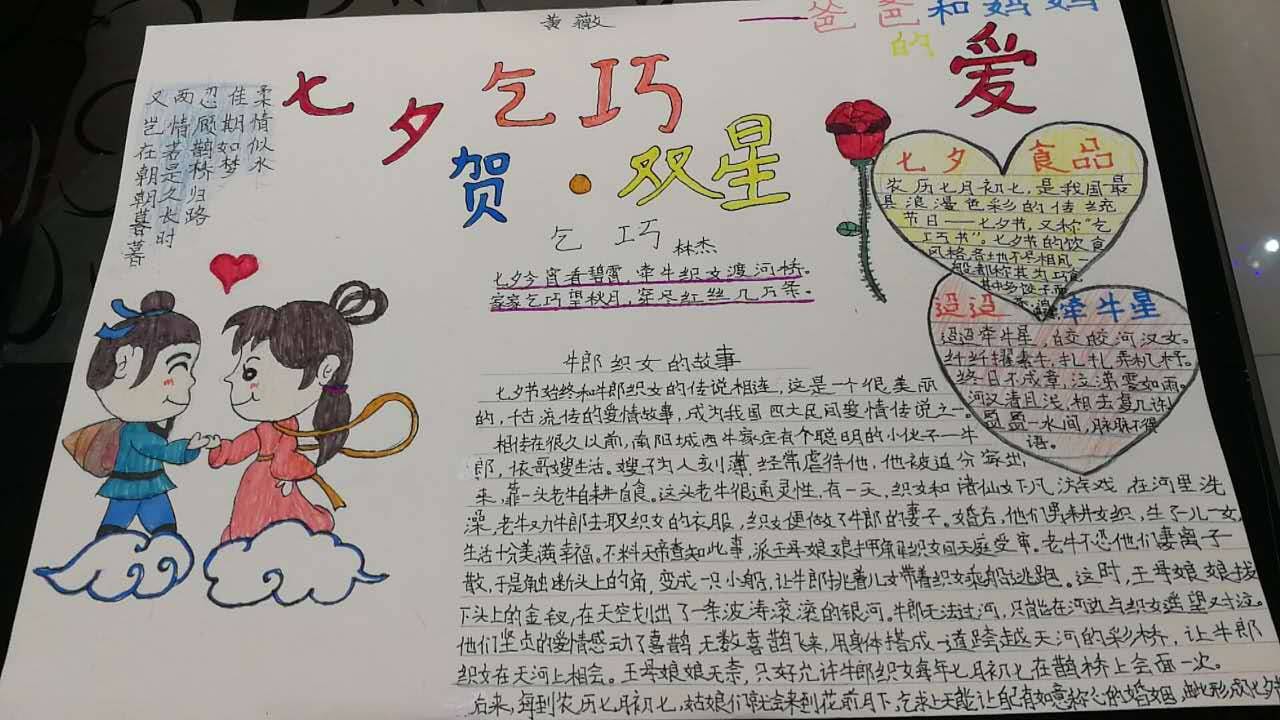 黄薇
——爸爸和妈妈
的爱
七夕乞巧
贺·双星
柔情似水
佳期如梦
忍顾鹊桥归路
两情若是久长时
又岂在朝朝暮暮
乞巧 林杰
七夕今宵看碧霄,牵牛织女渡河桥。
家家乞巧望秋月,穿尽红丝几万条。
七夕食品
农历七月初七,是我国最
具浪漫色彩的传统
节日——七夕节,又称“乞
巧节”。七夕节的饮食
风格各地不尽相同,一
般都称其为巧食
迢迢牵牛星
迢迢牵牛星 皎皎河汉女。
纤纤擢素手,扎扎弄机杼。
终日不成章,泣涕零如雨。
河汉清且浅,相去复几许!
盈盈一水间,脉脉不得
语。
牛郎织女的故事
七夕节始终和牛郎织女的传说相连,这是一个很美丽
的,千古流传的爱情故事,成为我国四大民间爱情传说之一。
相传在很久以前,南阳城西牛家庄有个聪明的小伙子一牛
郎,依哥嫂生活。嫂子为人刻薄,经常虐待他,他被迫分家出
来,靠一头老牛自耕自食。这头老牛很通灵性,有一天,织女和诸仙女下凡游戏,在河里洗
澡,老牛劝牛郎去取织女的衣服,织女便做了牛郎的妻子。婚后,他们男耕女织,生了一儿一女,
生活十分美满幸福。不料天帝查知此事,派王母娘娘押解织女回天庭受审。老牛不忍他们妻离子
散,于是触断头上的角,变成一只小船,让牛郎挑着儿女带着织女乘船逃跑。这时,王母娘娘拔
下头上的金钗,在天空划出了一条波涛滚滚的银河。牛郎无法过河,只能在河边与织女遥望对泣。
他们坚贞的爱情感动了喜鹊,无数喜鹊飞来,用身体搭成一道跨越天河的彩桥,让牛郎
织女在天河上相会。王母娘娘无奈,只好允许牛郎织女每年七月初七在鹊桥上会面一次。
后来,每到农历七月初七,姑娘们就会来到花前月下,乞求上天能让自己有如意称心的婚姻,由此形成七夕